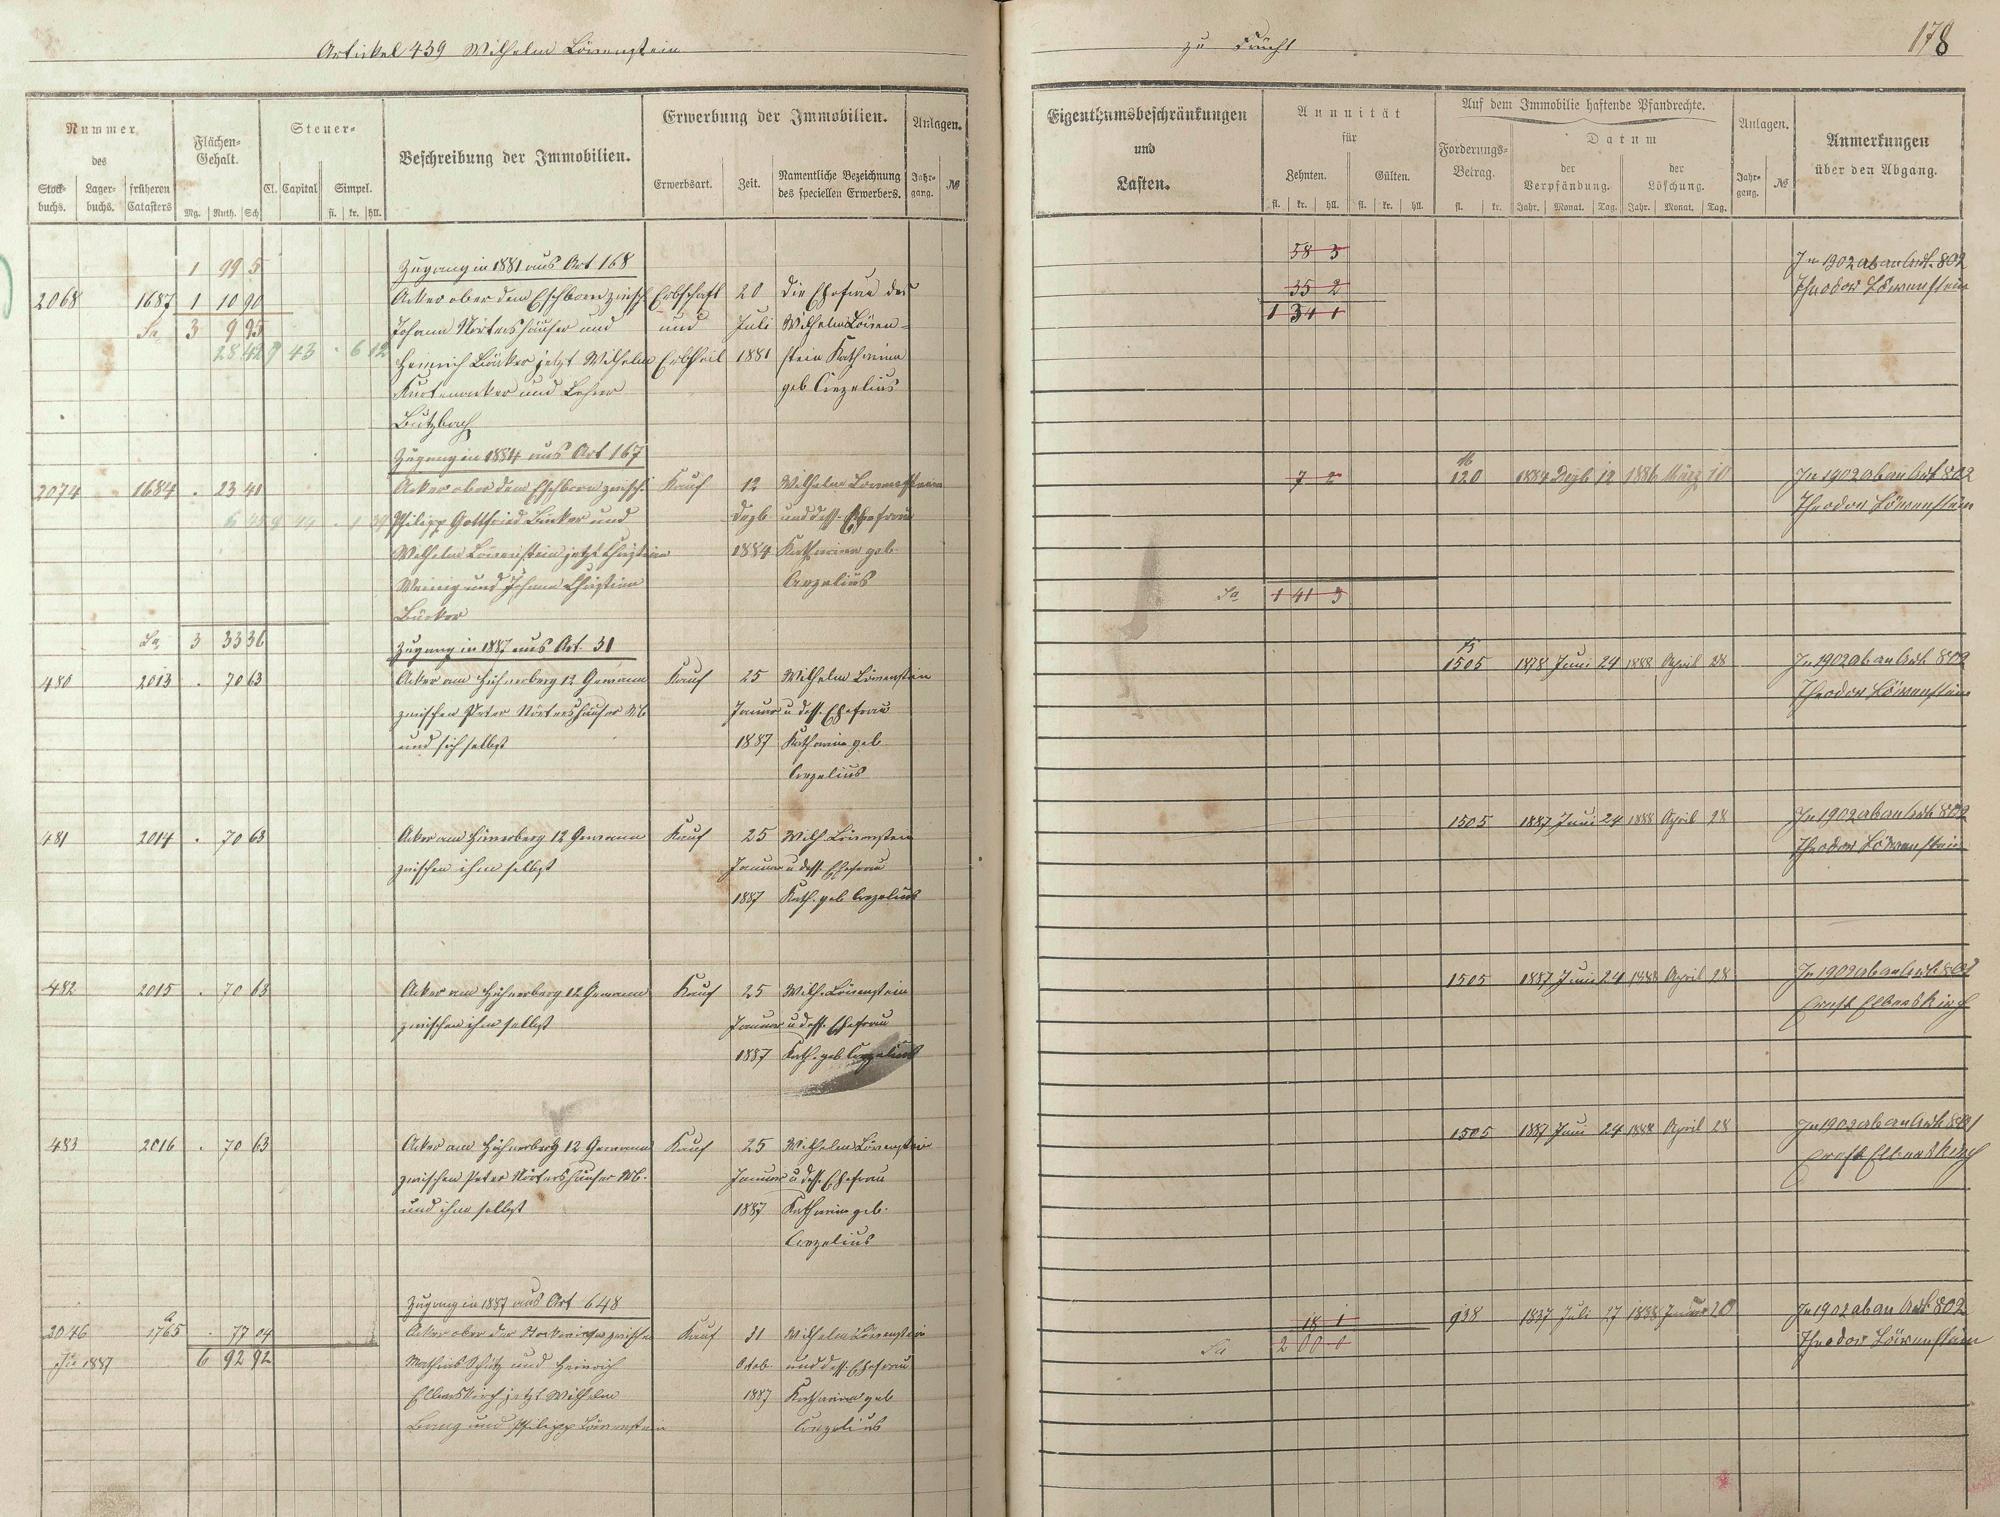 Artickel 439 Wilhelm Löwenstein
zu Frücht
178
Nummer
des
Stock-
buchs.
Lager-
buchs.
früheren
Catasters
Flächen-
Gehalt.
Mg. Ruth. Sch
Steuer-
Cl. Capital Simpel.
fl. kr. hll.
Beschreibung der Immobilien.
Erwerbung der Immobilien.
Erwerbsart. Zeit.
Namentliche Bezeichnung
des speciellen Erwerbers.
Anlagen.
Jahr-
gang.
№
Eigenthumsbeschränkungen
und
Lasten.
Annuität
für
Zehnten. Gülten.
fl. kr. hll. fl. kr. hll.
Auf dem Immobilie haftende Pfandrechte.
Forderungs-
Betrag.
fl. kr.
Datum
der
Verpfändung.
der
Löschung.
Jahr. Monat. Tag. Jahr. Monat. Tag.
Anlagen.
Jahr-
gang.
№
Anmerkungen
über den Abgang.
1 99 5 Zugang in 1881 aus Art 168
58 3
In 1902 ab an Art. 802
2068 1687 1 10 90 Acker ober dem Eschborn zwisch. Erbschaft 20 die Ehefrau des
35 2
Theodor Löwenstein
Sa 3 9 95 Johann Nörtershäuser und und Juli Wilhelm Löwen-
1 34 1
28 42 9 43 6 12 Heinrich Bänker jetzt Wilhelm Erbtheil 1881 stein Katharina
und Lehrer geb Crezelius
Butzbach
Zugang in 1884 aus Art 167
2074 1684 . 23 41 Acker ober dem Eschborn zwisch. Kauf 12 Wilhelm Löwenstein
7 2 120 1884 Dezb 12 1886 März 10 In 1902 ab an Art 802
Philipp Gottfried Bänker und Dezb und dess. Ehefrau
Theodor Löwenstein
Wilhelm Löwenstein jetzt Christian 1884 Katharina geb.
und Johann Christian Crezelius
Sa 1 41 3
Bänker
Sa 3 33 36 Zugang in 1887 aus Art. 31
480 2013 . 70 63 Acker am Hühnerberg 12 Gewann Kauf 25 Wilhelm Löwenstein
1505 1878 Juni 24 1888 April 28 In 1902 ab an Art. 802
zwischen Peter Nörtershäuser Januar u dess. Ehefrau
Theodor Löwenstein
und sich selbst 1887 Katharina geb
Crezelius
481 2014 . 70 63 Acker am Hünerberg 12 Gewann Kauf 25 Wilh. Löwenstein
1505 1887 Juni 24 1888 April 28 In 1902 ab an Art. 802
zwischen ihm selbst Januar u dess. Ehefrau
Theodor Löwenstein
1887 Kath. geb Crezelius
482 2015 . 70 63 Acker am Hühnerberg 12 Gewann Kauf 25 Wilh. Löwenstein
1505 1887 Juni 24 1888 April 28 In 1902 ab an Art.
zwischen ihm selbst Januar u dess. Ehefrau
Ernst Elbertskirch
1887 Kath. geb Crezelius
483 2016 . 70 63 Acker am Hühnerberg 12 Gewann Kauf 25 Wilhelm Löwenstein
1505 1887 Juni 24 1888 April 28 In 1902 ab an Art.
zwischen Peter Nörtershäuser Januar u dess. Ehefrau
Ernst Elbertskirch
und ihm selbst 1887 Katharina geb.
Crezelius
Zugang in 1887 aus Art 648
2046 1765 a . 77 04 Acker ober der zwischen Kauf 31 Wilhelm Löwenstein
18 1 938 1837 Juli 27 1888 Januar 20 In 1902 ab an Art. 802
pro 1887 6 92 92 Mathias Schütz und Heinrich Octob. und dess. Ehefrau
Sa 2 00 0
Theodor Löwenstein
Elbertskirch jetzt Wilhelm 1887 Katharina geb
Lang und Philipp Löwenstein Crezelius